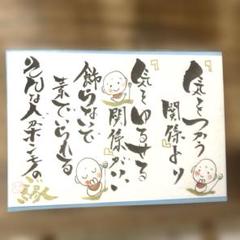 『気をつかう
関係』より
『気をゆるせる
関係』がいい
飾らないで
素でいられる
そんな人が本物の
縁